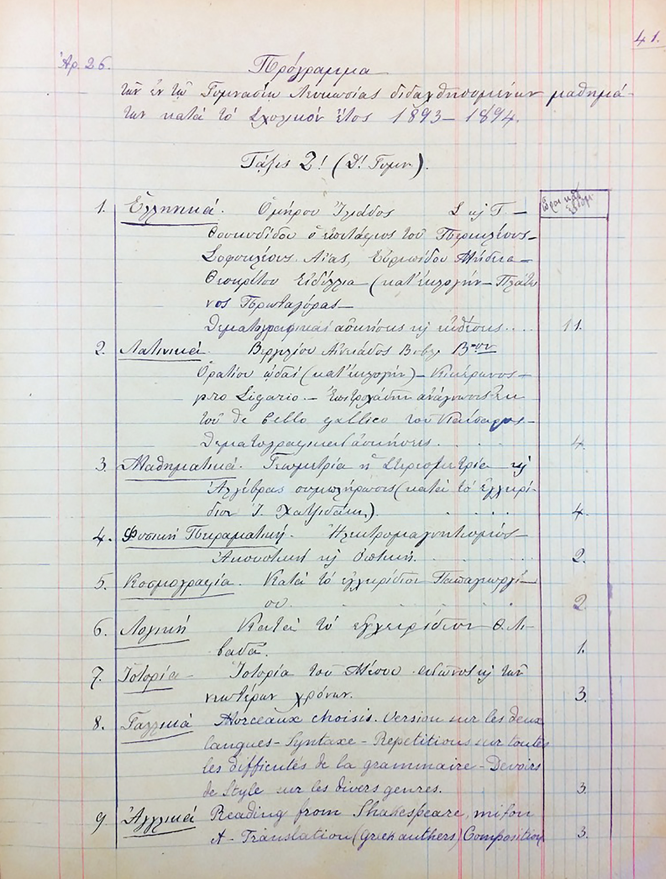 41.
Ἀρ. 26.
Πρόγραμμα
τῶν ἐν τῷ Γυμνασίῳ Λευκωσίας διδαχθησομένων μαθημά-
των κατὰ τὸ Σχολικὸν ἔτος 1893-1894.
Τάξις Ζ! (Δ! Γυμν.).
Ὧραι καθ'
1. Ἑλληνικά. Ὁμήρου Ἰλιάδος
Θουκυδίδου ὁ ἐπιτάφιος τοῦ Περικλέους-
Σοφοκλέους Αἴας, Εὐριπίδου Μήδεια-
Θεοκρίτου Εἰδύλλια-(κατ' ἐκλογὴν-Πλάτω-
νος Πρωταγόρας-
Θεματογραφικαὶ ἀσκήσεις κ ἐκθέσεις.... 11.
2. Λατινικά. Βεργιλίου Αἰνειάδος Βιβλ.
Ὁρατίου ὠδαί (κατ' ἐκλογήν)-Κικέρωνος-
pro Ligario.-
τοῦ de bello gallico τοῦ Καίσαρος-
Θεματογραφικαὶ ἀσκήσεις. . . . . 4.
3. Μαθηματικά. Γεωμετρία ἢ Στερεομετρία κ
Ἀλγέβρας συμπλήρωσις (κατὰ τὸ ἐγχειρί-
διον Ἰ. Χατζιδάκι). . . . . . 4.
4. Φυσικὴ Πειραματική. Ἠλεκτρομαγνητισμὸς
Ἀκουστικὴ κ Ὀπτική. . . . . 2.
5. Κοσμογραφία. Κατὰ τὸ ἐγχειρίδιον Παπαγεωργί-
ου. . . . . . 2
6. Λογική Κατὰ τὸ ἐγχειρίδιον Θ. Λι-
βαδᾶ. . . . . . 1.
7. Ἱστορία- Ἱστορία τοῦ Μέσου αἰῶνος κ τῶν
νεωτέρων χρόνων. . . . . . 3.
8. Γαλλικά Morceaux choisis. Version sur les deux
langues-Syntaxe-Repetitions sur toutes
les difficutés de la grammaire-Devoirs
de Style sur les divers genres. 3.
9 Ἀγγλικά Reading from Shakespeare, milton
A-Translation (greek authers) Composition. 3.